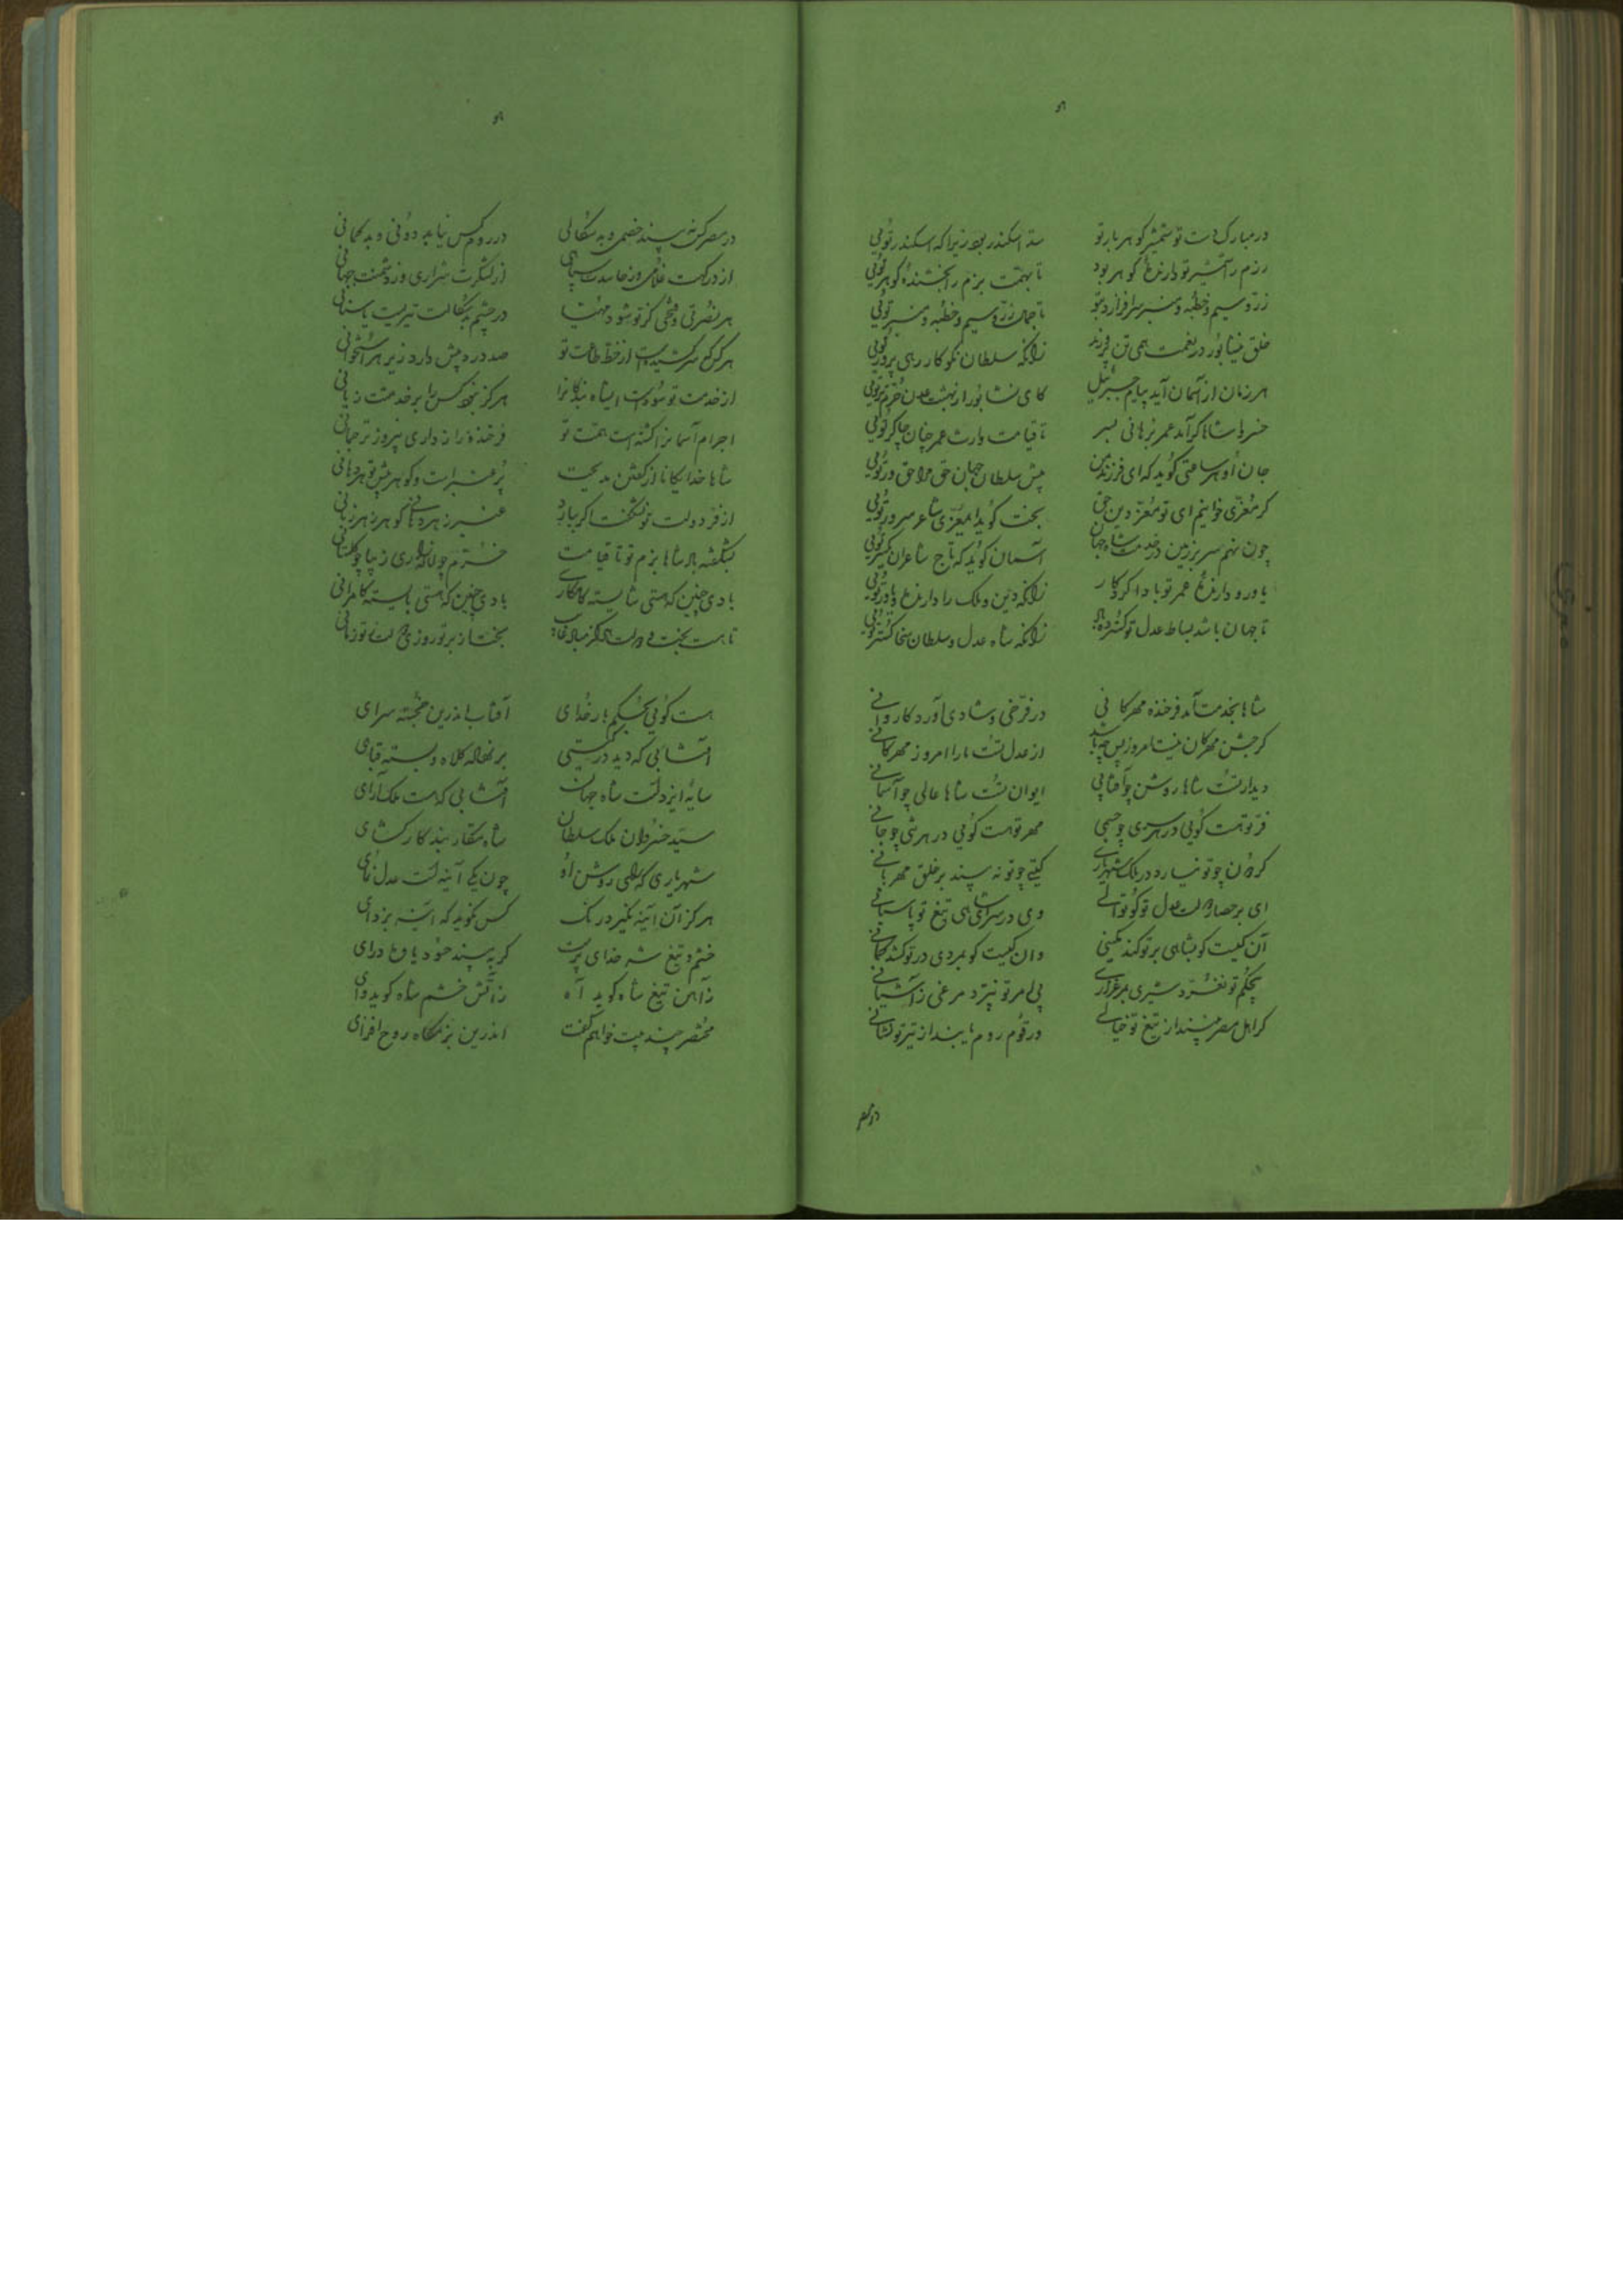 در مبارک دست تو شمشیر گوهربار تو سد اسکندر بود زیرا که اسکندر توئی
رزم را شمشیر تو دارنده گوهر بود تا بهمت بزم را بخشنده گوهر توئی
زر و سیم و خطبه و منبر سرافرازد بتو تا جمال زر و سیم و خطبه و منبر توئی
خلق نیشابور در نعمت همی تن پرورند زانکه سلطان نکوکار رهی پرور توئی
هر زمان از آسمان آید پیام جبرئیل کای نشابور از بهشت عدن خرم‌تر توئی
خسروا شاها گر آمد عمر برهانی بسر تا قیامت وارث عمر چنان چاکر توئی
جان او هر ساعتی گوید که ای فرزند من پیش سلطان جهان حق مرا حق‌ور توئی
گر معزی خوانیم ای تو معز دین حق بخت گوید ای معزی شاعر سرور توئی
چون نهم سر بر زمین در خدمت شاه جهان آسمان گوید که تاج شاعران یکسر توئی
یاور و دارنده عمر تو بادا کردگار زانکه دین و ملک را دارنده و یاور توئی
تا جهان باشد بساط عدل تو گسترده باد زانکه شاه عدل و سلطان سخاگستر توئی
شاها بخدمت آمد فرخنده مهرگانی در فرخی و شادی آورد کاروانی
گر جشن مهرگان نیست امروز پس چه باشد از عدل تست ما را امروز مهرگانی
دیدار تست شاها روشن چو آفتابی ایوان تست شاها عالی چو آسمانی
فر تو هست گوئی در هر سری چو چشمی مهر تو هست گوئی در هر تنی چو جانی
گردون چو تو نیارد در ملک شهریاری گیتی چو تو نه بیند بر خلق مهربانی
ای بر حصار دولت عدل تو کوتوالی وی در سرای شاهی تیغ تو پاسبانی
آن کیست کو بشاهی بر تو کند کمینی وان کیست کو بمردی در تو کشد کمانی
بی‌حکم تو نغرد شیری بمرغزاری بی امر تو نپرد مرغی ز آشیانی
گر اهل مصر بینند از تیغ تو خیالی در قوم روم یابند از تیر تو نشانی
در مصر
در مصر کس نه بیند خصمی و بدسگالی در روم کس نیابد دونی و بدگمانی
از درگهت غلامی وز حاسدت سپاهی از لشگرت سواری وز دشمنت جهانی
هر نصرتی و فتحی کز تو شود مهیا در چشم بدسگالت تیریست یا سنانی
هر گرگ سر کشیده از خط طاعت تو صد درد بیش دارد زیر هر استخوانی
از خدمت تو سود است ای شاه بندگانرا هرگز نبود کس را بر خدمتت زیانی
اجرام آسمانرا گشته است همت تو فرخنده رازداری پیروز ترجمانی
شاها خدایگانا از گفتن مدیحت پر عنبر است و گوهر پیش تو هر دهانی
از فر دولت تو نشگفت اگر ببارد عنبر ز هر دهانی گوهر ز هر زبانی
بشگفته باد شاها بزم تو تا قیامت خرم چو نوبهاری زیبا چو گلستانی
بادی چنین که هستی شایسته کامگاری بادی چنین که هستی بایسته کامرانی
هست گوئی بحکم بار خدای آفتاب اندرین خجسته سرای
آفتابی که دید در گیتی بر نهاده کلاه و بسته قبای
سایه ایزد است شاه جهان آفتابی که هست ملک آرای
سید خسروان ملک سلطان شاه سختار بند کار گشای
شهریاری که رای روشن او چون یکی آینه است عدل نمای
هرگز آن آینه نگیرد زنگ کس نگوید که آینه بزدای
خشم و تیغ شه خدای پرست گر به بیند حود یاوه درای
ز آهن تیغ شاه گوید آه ز آتش خشم شاه گوید وای
مختصر چند بیت خواهم گفت اندرین بزمگاه روح افزای